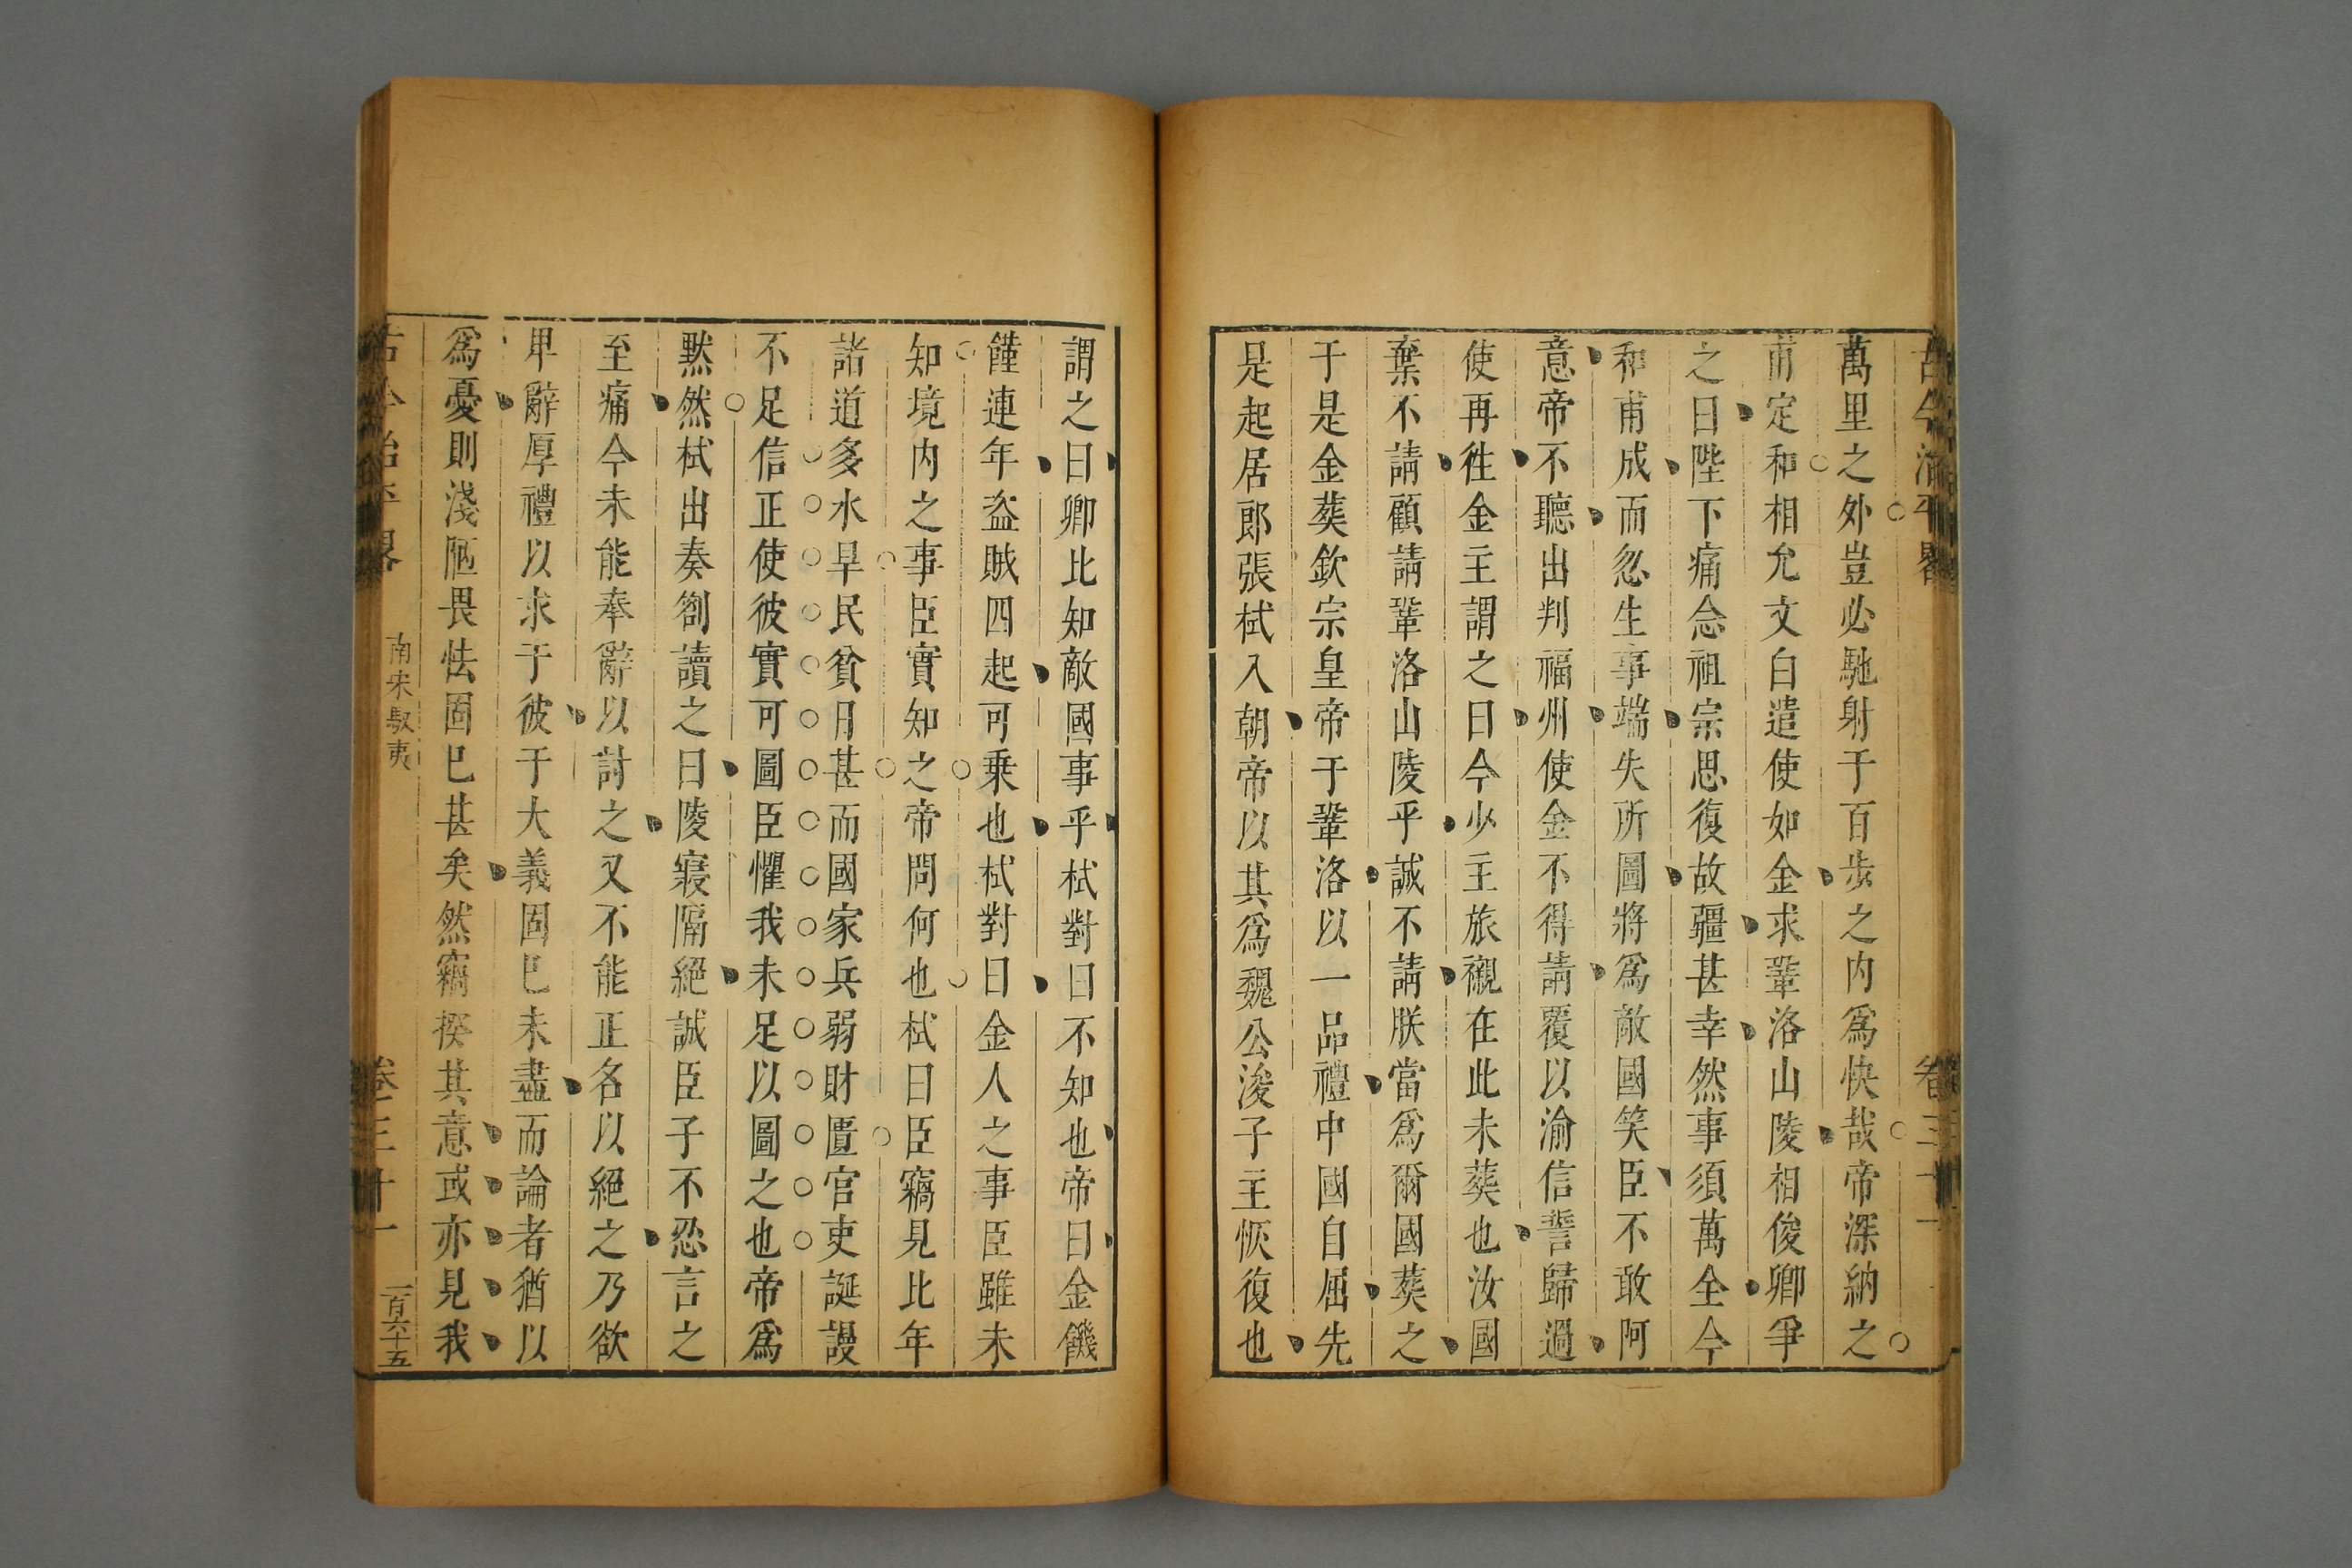 古今治平畧
卷三十一
萬里之外豈必馳射于百步之内爲快哉帝深納之
甫定和相允文白遣使如金求鞏洛山陵相俊卿爭
之曰陛下痛念祖宗思復故疆甚幸然事須萬全今
和甫成而忽生事端失所圖將爲敵國笑臣不敢阿
意帝不聽出判福州使金不得請覆以渝信誓歸過
使再徃金主謂之曰今少主旅櫬在此未葬也汝國
棄不請顧請鞏洛山陵乎誠不請朕當爲爾國葬之
于是金葬欽宗皇帝于鞏洛以一品禮中國自屈先
是起居郎張栻入朝帝以其爲魏公浚子主恢復也
謂之曰卿比知敵國事乎栻對曰不知也帝曰金饑
饉連年盗賊四起可乗也栻對曰金人之事臣雖未
知境内之事臣實知之帝問何也栻曰臣竊見比年
諸道多水旱民貧日甚而國家兵弱財匱官吏誕謾
不足信正使彼實可圖臣懼我未足以圖之也帝爲
黙然栻出奏劄讀之曰陵寢隔絕誠臣子不忍言之
至痛今未能奉辭以討之又不能正名以絕之乃欲
卑辭厚禮以求于彼于大義固已未盡而論者猶以
爲憂則淺陋畏怯固已甚矣然竊揆其意或亦見我
古今治平畧
南宋馭夷
卷三十一
一百六十五